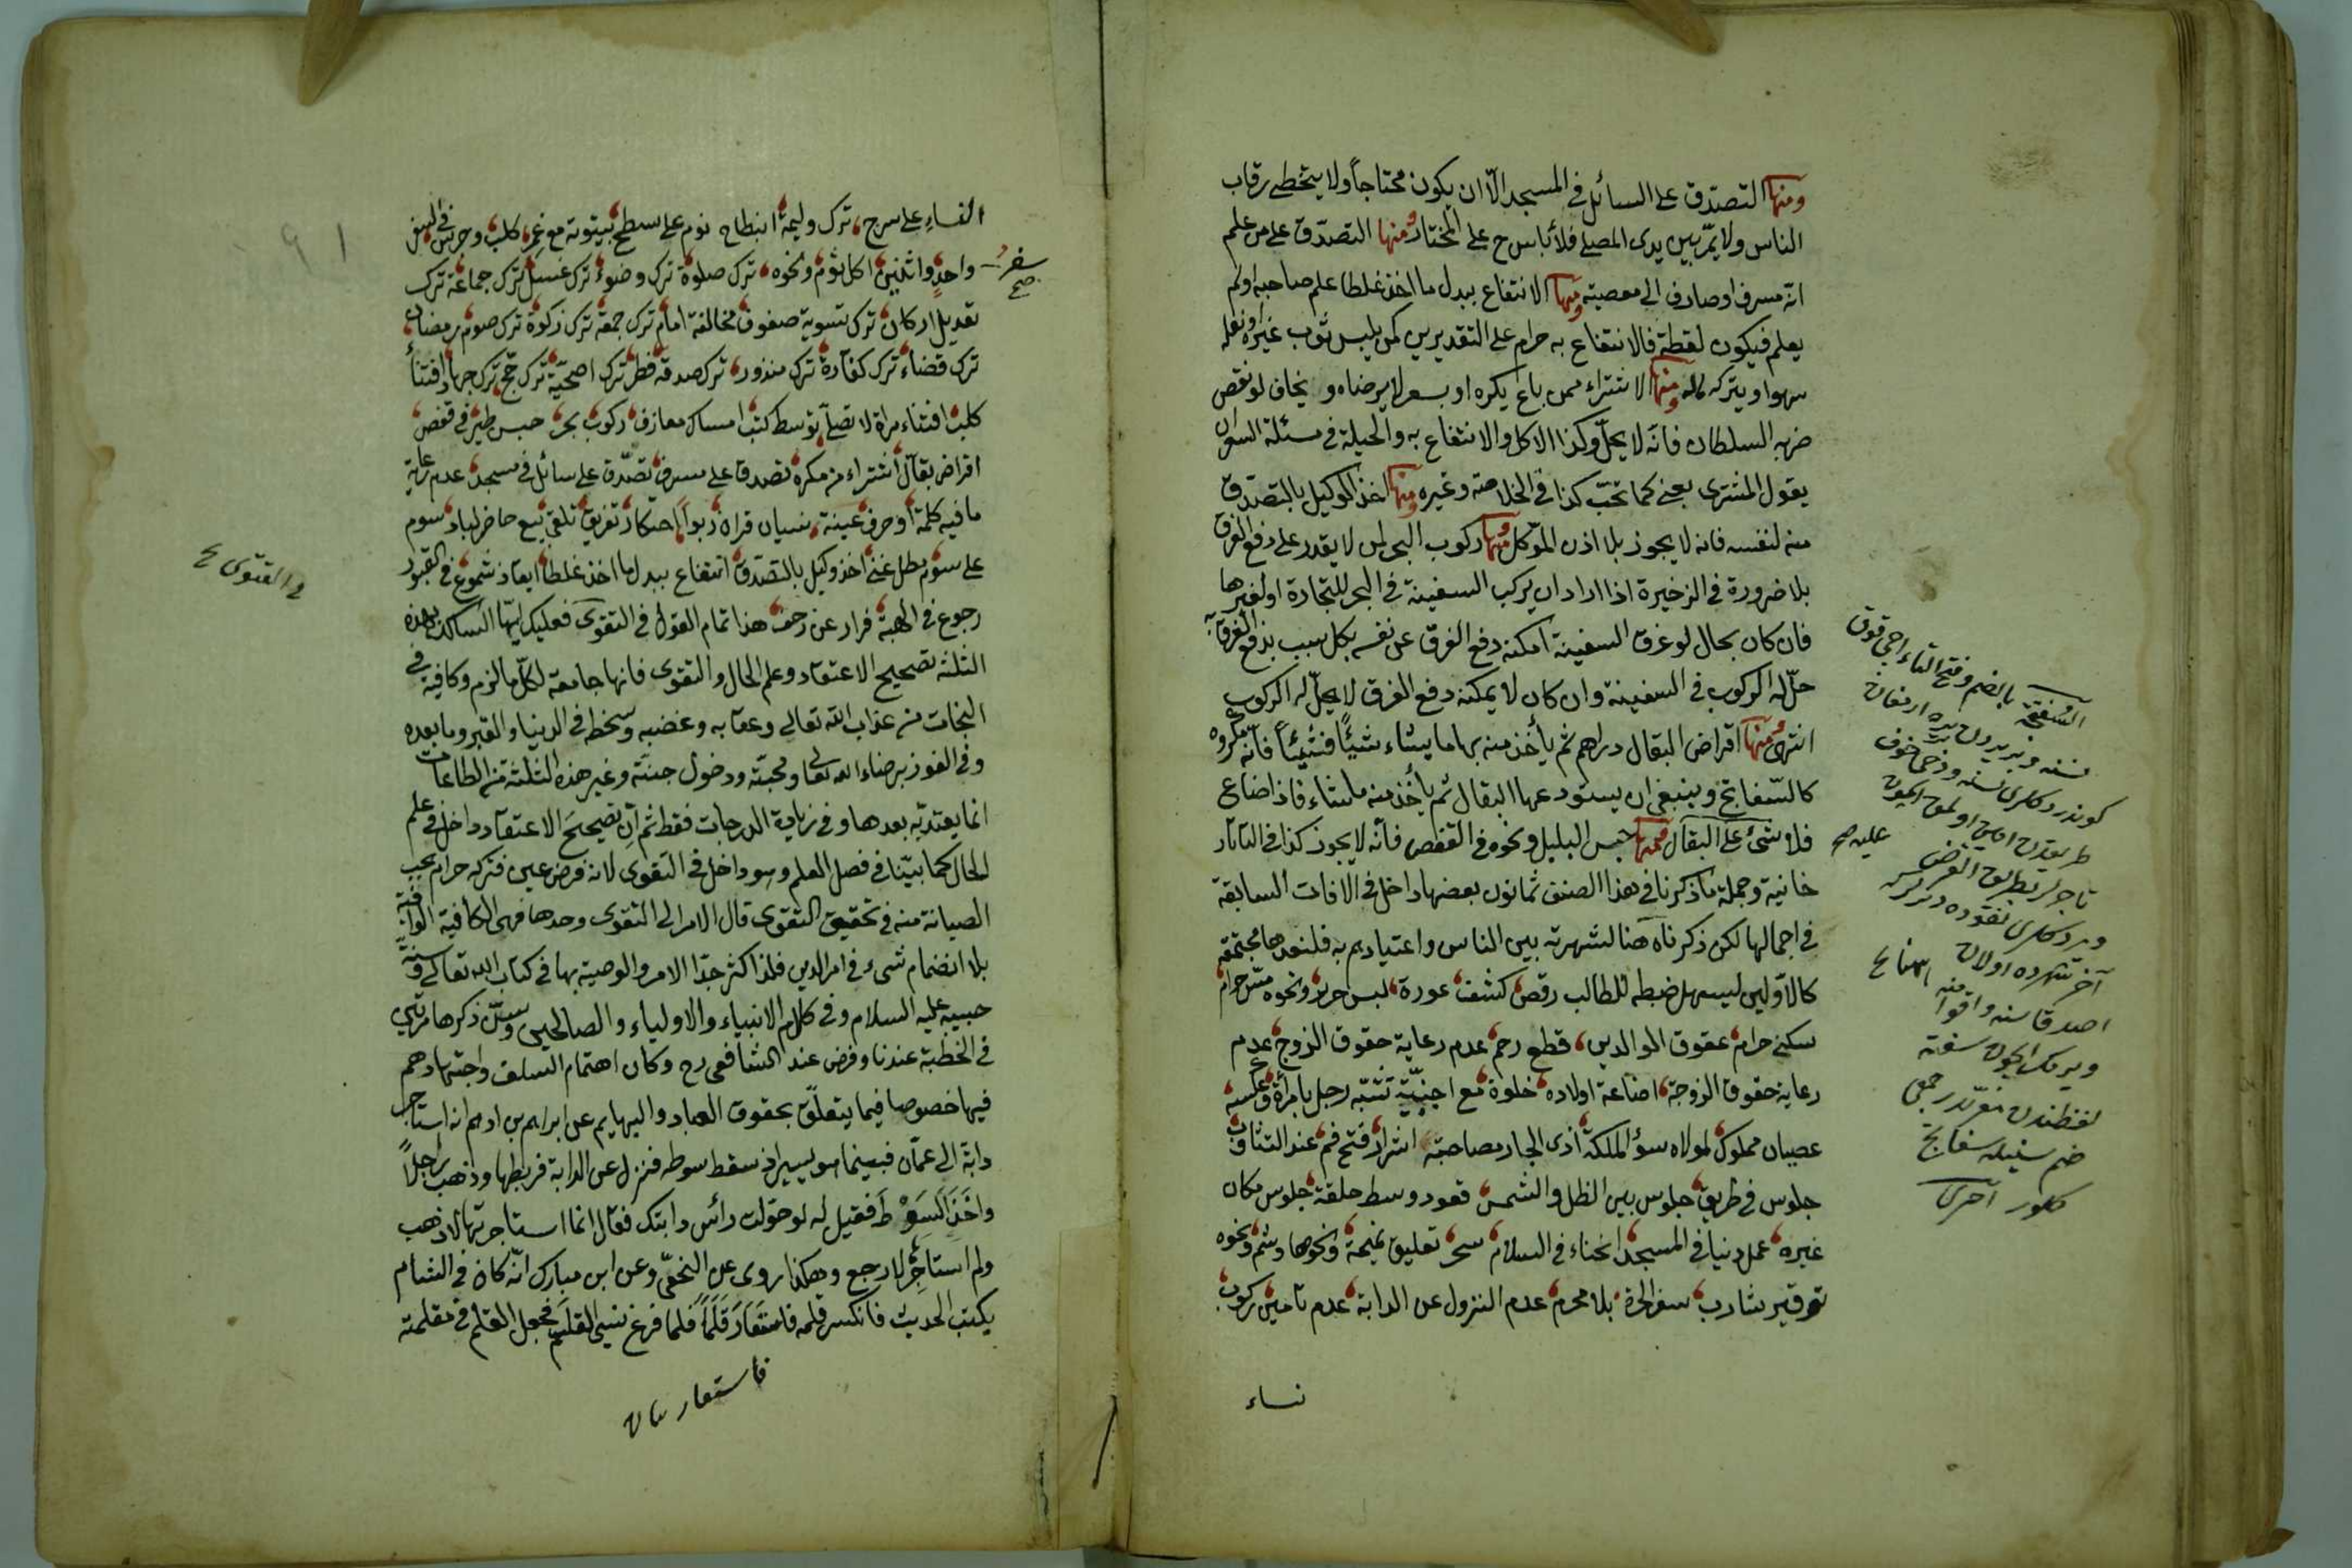 ومنها التصدق على السائل في المسجد الا ان يكون محتاجاً ولا يتخطى رقاب
الناس ولا يمر بين يدى المصلى فلا بأس ح على المختار ومنها التصدق على من علم
انه مسرف او صارف الى معصية ومنها الانتفاع ببدل ما اخذ غلطا علم صاحبه او لم
يعلم فيكون لقطة فالانتفاع به حرام على التقديرين كمن يلبس ثوب غيره او نعله
سهوا او يتركه له ومنها الاشتراء ممن باع بكره او بسعر لا يرضاه و يخاف لو نقص
ضربه السلطان فانه لا يحل وكذا الاكل والانتفاع به والحيلة في مسئلة السعر ان
يقول المشترى بعنى كما تحب كذا في الخلاصة وغيره ومنها اخذ الوكيل بالتصدق
منه لنفسه فانه لا يجوز بلا اذن الموكل ومنها ركوب البحر لمن لا يقدر على دفع الغرق
بلا ضرورة في الذخيرة اذا اراد ان يركب السفينة في البحر للتجارة او لغيرها
فان كان بحال لو غرق السفينة امكنه دفع الغرق عن نفسه بكل سبب يدفع الغرق به
حل له الركوب في السفينة وان كان لا يمكنه دفع الغرق لا يحل له الركوب
انتهى ومنها اقراض البقال دراهم ثم يأخذ منه بها ما يشاء شيئاً فشيئاً فانه مكروه
كالسفاتج وينبغى ان يستودعها البقال ثم يأخذ منه ما شاء فاذا ضاع
فلا شئ على البقال ومنها حبس البلبل ونحوه في القفص فانه لا يجوز كذا في التاتار
خانية وجملة ما ذكرنا في هذا الصنف ثمانون بعضها داخل في الافات السابقة
في اجمالها لكن ذكرناه هنا لشهرته بين الناس واعتيادهم به فلنعدها مجتمعة
كالاولين ليسهل ضبطه للطالب رقص كشف عورة لبس حرير ونحوه مس حرام
سكنى حرام عقوق الوالدين قطع رحم عدم رعاية حقوق الزوج عدم
رعاية حقوق الزوجة اضاعة اولاده خلوة مع اجنبية تشبه رجل بامرأة وعكسه
عصيان مملوك لمولاه سوء الملكة اذى الجار مصاحبة اشرار فتح فم عند التثاوب
جلوس في طريق جلوس بين الظل والشمس قعود وسط حلقة جلوس مكان
غيره عمل دنيا في المسجد انحناء في السلام سحر تعليق تميمة ونحوها وشم ونحوه
توفير شارب سفر الحرة بلا محرم عدم النزول عن الدابة عدم تأمين ركوب
نساء
السفتجة بالضم وفتح التاء
عليه صح
النساء على سرج ترك وليمة انبطاح نوم على سطح بيتوتة مع غمر كلب وجرس في السفر
سفر صح
واحد واثنين اكل ثوم ونحوه ترك صلوة ترك وضوء ترك غسل ترك جماعة ترك
تعديل اركان ترك تسوية صفوف مخالفة امام ترك جمعة ترك زكوة ترك صوم رمضان
ترك قضاء ترك كفارة ترك منذور ترك صدقة فطر ترك اضحية ترك حج ترك جهاد اقتناء
كلب اقتناء مرأة لا تصلى توسط كتب امساك معازف ركوب بحر حبس طير في قفص
اقراض بقال اشتراء من مكره تصدق على مسرف تصدق على سائل في مسجد عدم رعاية
ما فيه كلمة او حرف عينة نسيان قران ربوا احتكار تفريق تلقى بيع حاضر لباد سوم
على سوم مطل غنى اخذ وكيل بالتصدق انتفاع ببدل ما اخذ غلطا ايقاد شموع في القبور
رجوع في الهبة فرار عن زحف هذا تمام القول في التقوى فعليك ايها السالك بهذه
الثلثة تصحيح الاعتقاد وعلم الحال والتقوى فانها جامعة لكل ما لزم وكافية في
النجات من عذاب الله تعالى وعقابه وغضبه وسخطه في الدنيا والقبر وما بعده
وفي الفوز برضاء الله تعالى ومحبته ودخول جنته وغير هذه الثلثة من الطاعات
انما يعتد به بعدها وفي زيادة الدرجات فقط ثم ان تصحيح الاعتقاد داخل في علم
الحال كما بينا في فصل العلم وهو داخل في التقوى لانه فرض عين فتركه حرام يجب
الصيانة منه في تحقيق التقوى قال الامر الى التقوى وحدها فهى الكافية الوافية
بلا انضمام شيء في امر الدين فلذا كثر جدا الامر والوصية بها في كتاب الله تعالى وسنة
حبيبه عليه السلام وفي كلام الانبياء والاولياء والصالحين وسن ذكرها مرتين
في الخطبة عندنا وفرض عند الشافعى رح وكان اهتمام السلف واجتهادهم
فيها خصوصا فيما يتعلق بحقوق العباد والبهايم عن ابراهيم بن ادهم انه استاجر
دابة الى عمان فبينما هو يسير اذ سقط سوطه فنزل عن الدابة فربطها وذهب راجلاً
واخذ السوط فقيل له لو حولت رأس دابتك فقال انما استاجرتها لاذهب
ولم استاجر لارجع وهكذا روى عن النخعى وعن ابن مبارك انه كان في الشام
يكتب الحديث فانكسر قلمه فاستعار قلماً فلما فرغ نسى القلم فجعل القلم في مقلمته
فاستعار